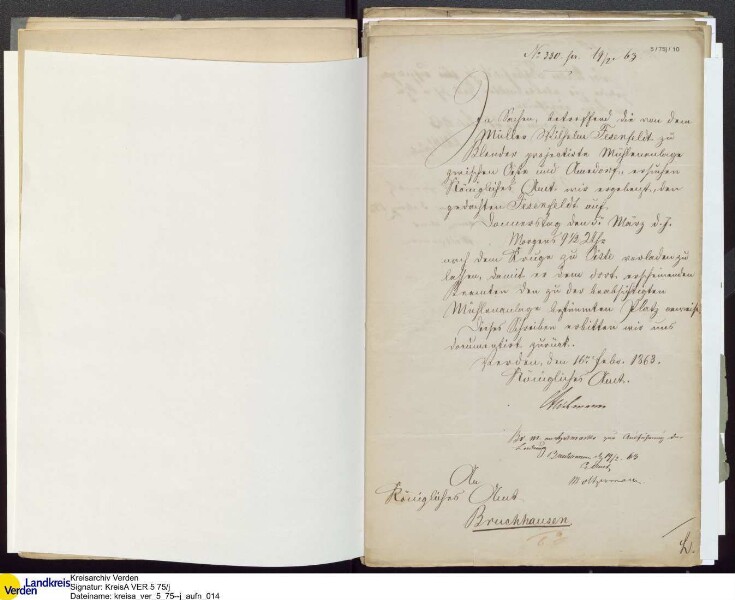 No 330. pr. 19/2 63
5/75j/10
In Sachen, betreffend die von dem
Müller Wilhelm Fesenfeldt zu
Blender projectirte Mühlenanlage
zwischen Oiste und Amedorf, ersuchen
Königliches Amt wir ergebenst, den
gedachten Fesenfeldt auf
Donnerstag den 5t März d. J.
Morgens 9 1/2 Uhr
nach dem Kruge zu Oiste verladen zu
lassen, damit er dem dort erscheinenden
Beamten den zu der beabsichtigten
Mühlenanlage bestimmten Platz anweise.
Dieses Schreiben erbitten wir uns
documentirt zurück.
Verden, den 16ten Febr. 1863.
Königliches Amt.
Br. m. zur Ausführung der
Ladung
19/2. 63
An
Königliches Amt
Bruchhausen
Landkreis
Verden
Kreisarchiv Verden
Signatur: KreisA VER 5 75/j
Dateiname: kreisa_ver_5_75--j_aufn_014